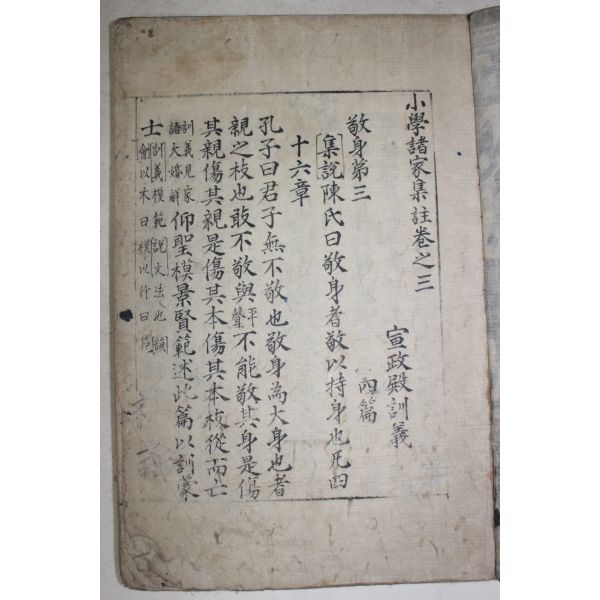 小學諸家集註卷之三
宣政殿訓義
內篇
敬身第三
集說陳氏曰敬身者敬以持身也凡四
十六章
孔子曰君子無不敬也敬身為大身也者
親之枝也敢不敬與平聲不能敬其身是傷
其親傷其親是傷其本傷其本枝從而亡
訓義見家語大婚解仰聖模景賢範述此篇以訓蒙
士訓義模範說文法也韻會以木曰模以竹曰範